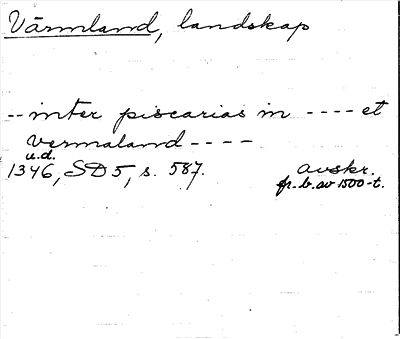 Värmland, landskap
-- inter piscarias in ---- et
vermaland ----
u.d.
1346, SD 5, s. 587.
avskr.
fr. b. av 1500-t.